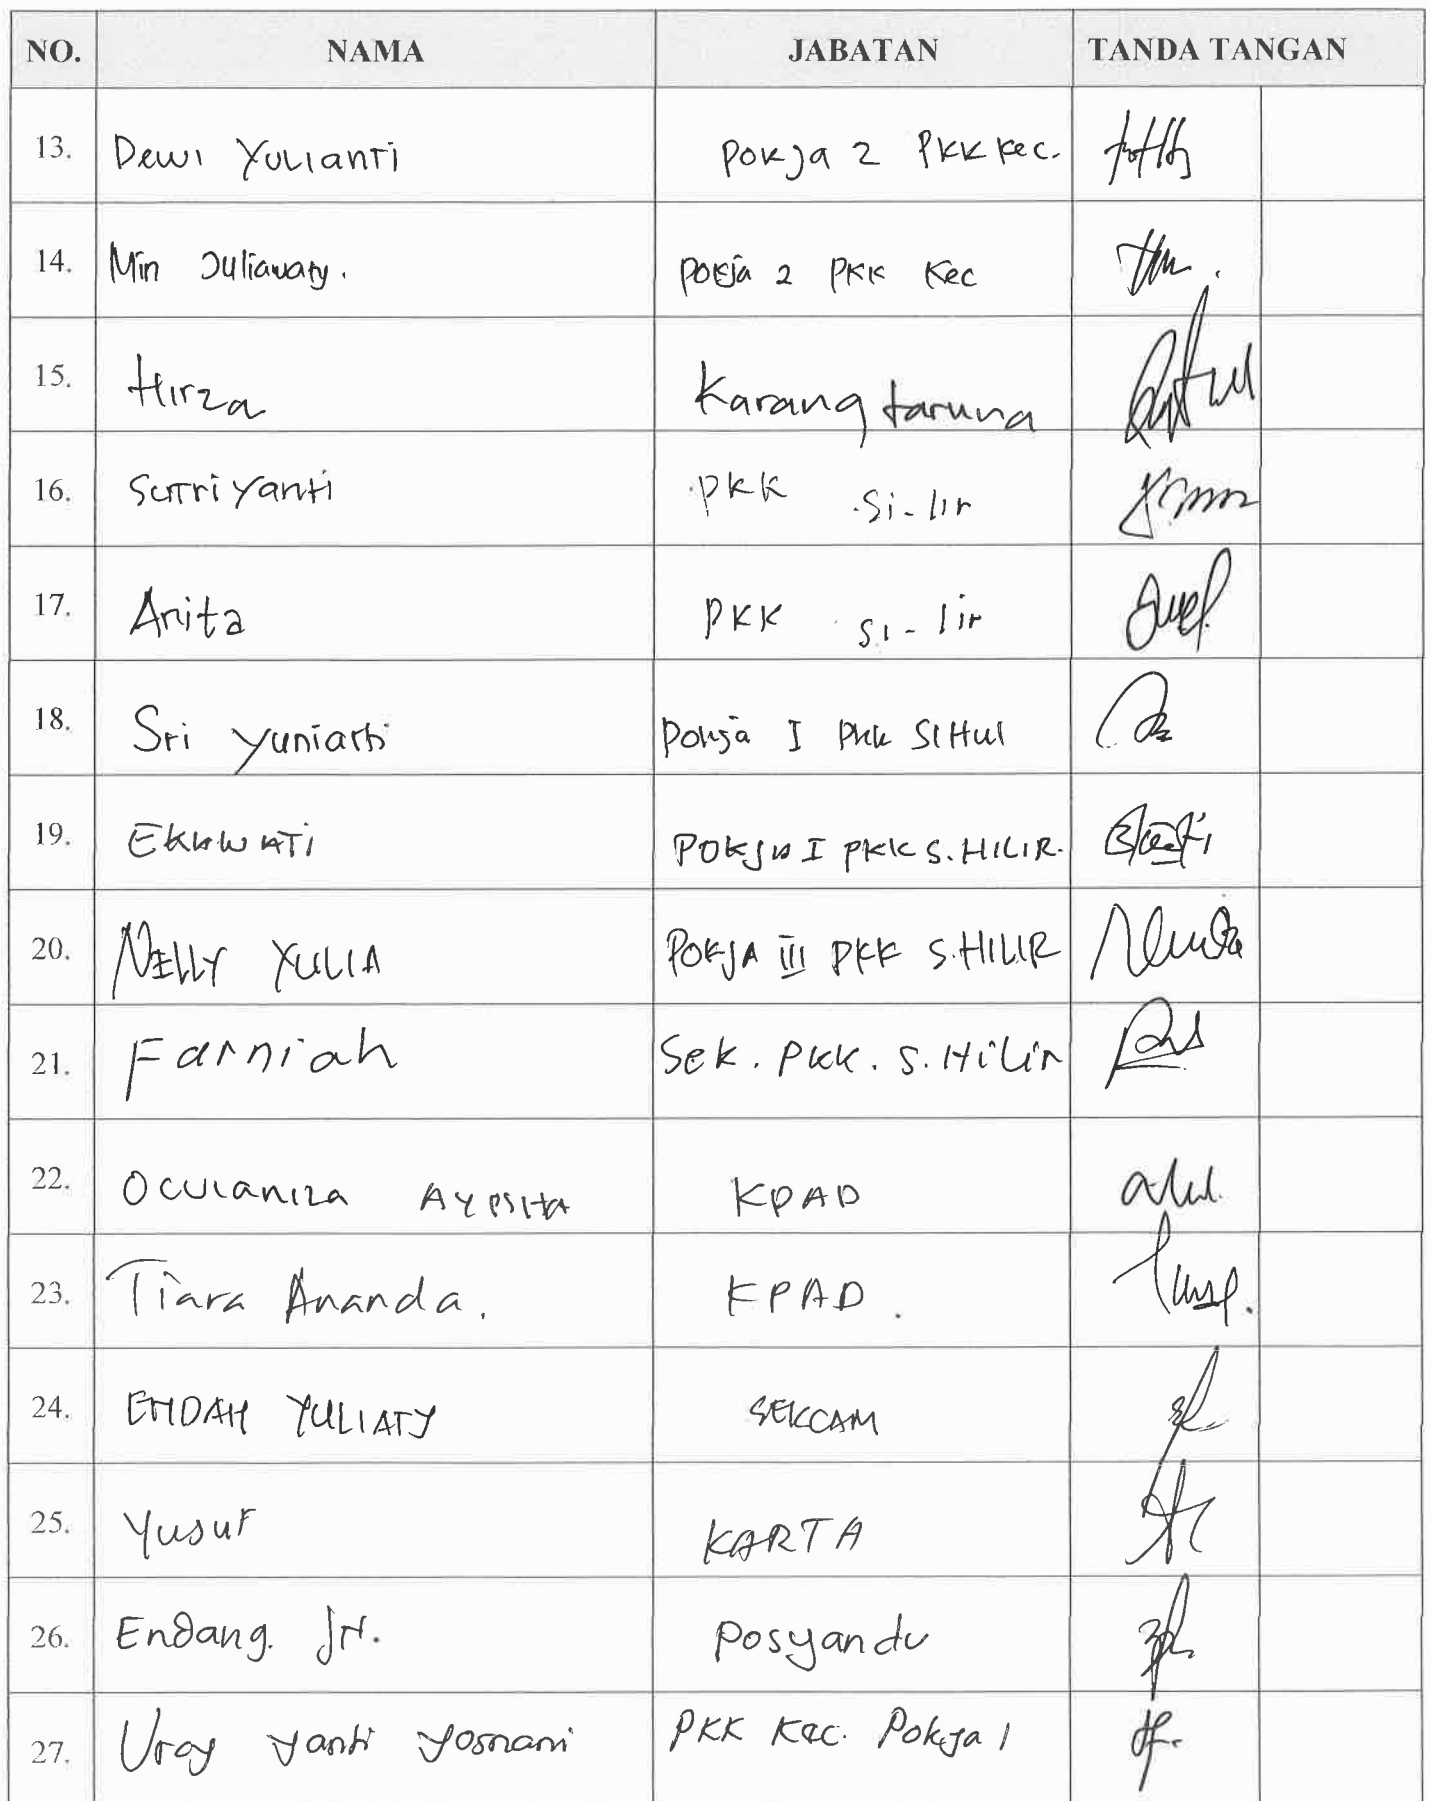 NO. NAMA JABATAN TANDA TANGAN
13. Dewi Yulianti Pokja 2 PKK Kec.
14. Min Juliawaty. Pokja 2 PKK Kec
15. Hirza Karang taruna
16. Sutriyanti PKK Si-lir
17. Anita PKK Si-lir
18. Sri Yuniarti Pokja I PKK SIHul
19. EKAWATI POKJA I PKK S.HILIR.
20. NELLY YULIA POKJA III PKK S.HILIR
21. Farniah Sek. PKK. S. Hilir
22. Oculaniza AYPSITA KPAD
23. Tiara Ananda. KPAD.
24. ENDAH YULIATY SEKCAM
25. Yusuf KARTA
26. Endang. Posyandu
27. Uray Yanti Yosnani PKK Kec. Pokja 1